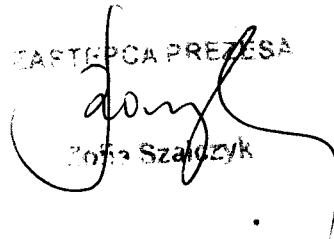 ZASTĘPCA PREZESA
Zofia Szalczyk